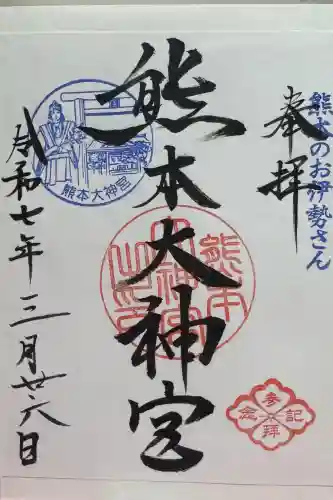 熊本のお伊勢さん
奉拝
熊本大神宮
熊本大神宮
令和七年三月廿六日
参拝
記念